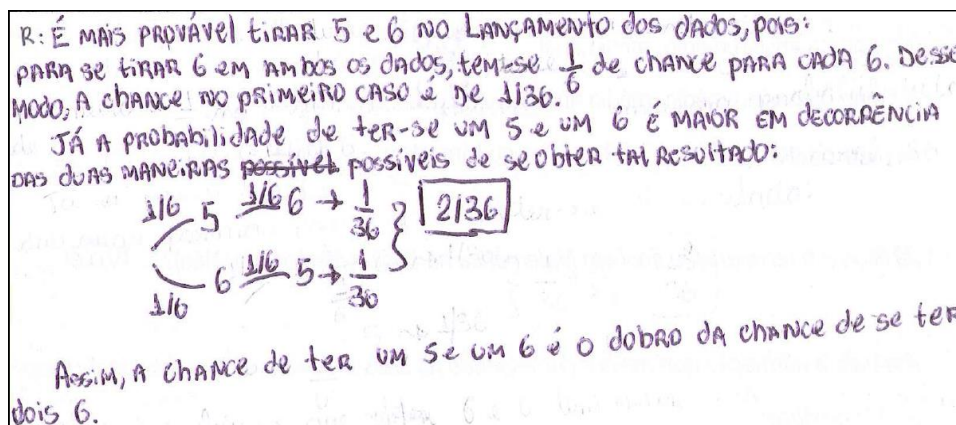 R: É MAIS PROVÁVEL TIRAR 5 e 6 NO LANÇAMENTO DOS DADOS, POIS:
PARA SE TIRAR 6 EM AMBOS OS DADOS, TEM-SE 1/6 DE CHANCE PARA CADA 6. DESSE
MODO, A CHANCE NO PRIMEIRO CASO É DE 1/36.
JÁ A PROBABILIDADE DE TER-SE UM 5 E UM 6 É MAIOR EM DECORRÊNCIA
DAS DUAS MANEIRAS POSSÍVEL POSSÍVEIS DE SE OBTER TAL RESULTADO:
1/6 5 1/6 6 → 1/36
2/36
1/6 6 1/6 5 → 1/36
ASSIM, A CHANCE DE TER UM 5 E UM 6 É O DOBRO DA CHANCE DE SE TER
DOIS 6.